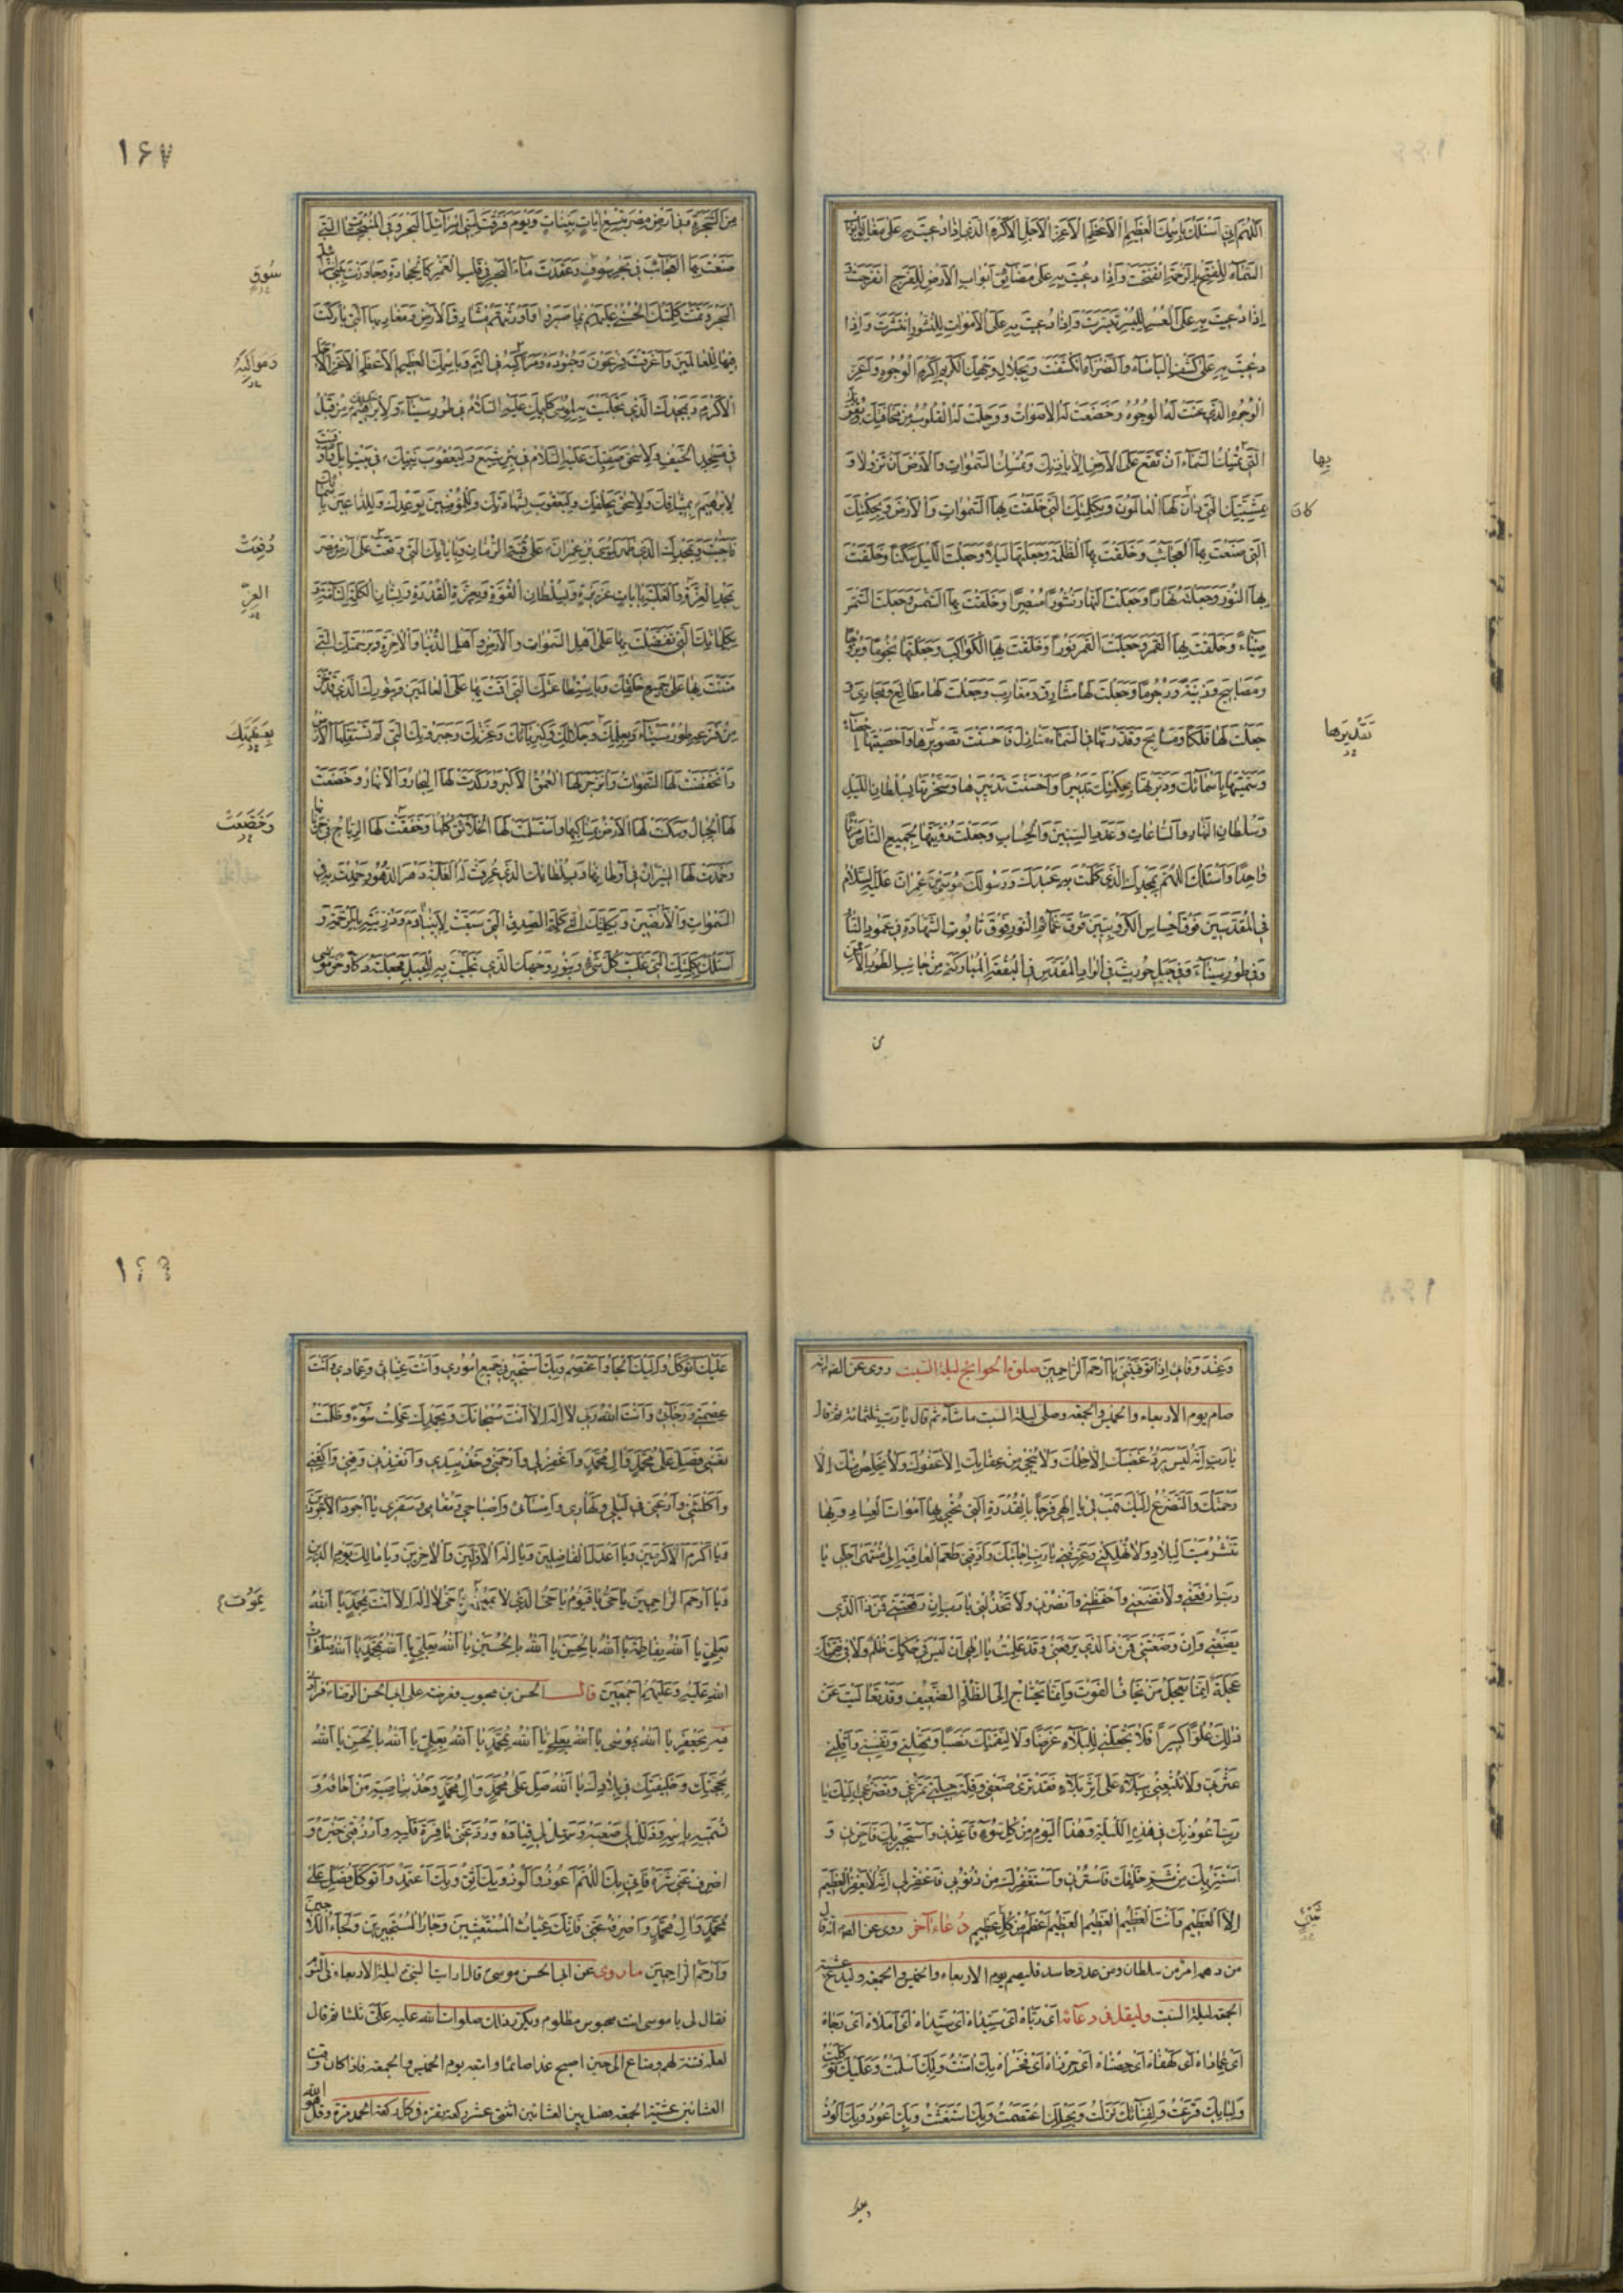 اَللّٰهُمَّ اِنّى اَسْئَلُكَ بِاسْمِكَ الْعَظيمِ الْاَعْظَمِ الْاَعَزِّ الْاَجَلِّ الْاَكْرَمِ الَّذى اِذا دُعيتَ بِهِ عَلى مَغالِقِ اَبْوابِ
السَّمآءِ لِلْفَتْحِ بِالرَّحْمَةِ انْفَتَحَتْ وَاِذا دُعيتَ بِهِ عَلى مَضآئِقِ اَبْوابِ الْاَرْضِ لِلْفَرَجِ انْفَرَجَتْ
اِذا دُعيتَ بِهِ عَلَى الْعُسْرِ لِلْيُسْرِ تَيَسَّرَتْ وَاِذا دُعيتَ بِهِ عَلَى الْاَمْواتِ لِلنُّشُورِ انْتَشَرَتْ وَاِذا
دُعيتَ بِهِ عَلى كَشْفِ الْبَأْسآءِ وَالضَّرّآءِ انْكَشَفَتْ وَبِجَلالِ وَجْهِكَ الْكَريمِ اَكْرَمِ الْوُجُوهِ وَاَعَزِّ
الْوُجُوهِ الَّذى عَنَتْ لَهُ الْوُجُوهُ وَخَضَعَتْ لَهُ الْاَصْواتُ وَوَجِلَتْ لَهُ الْقُلُوبُ مِنْ مَخافَتِكَ وَبِقُوَّتِكَ
الَّتى تُمْسِكُ السَّمآءَ اَنْ تَقَعَ عَلَى الْاَرْضِ اِلّا بِاِذْنِكَ وَتُمْسِكُ السَّمٰواتِ وَالْاَرْضَ اَنْ تَزُولا وَ
بها
بِمَشِيَّتِكَ الَّتى دانَ لَهَا الْعالَمُونَ وَبِكَلِمَتِكَ الَّتى خَلَقْتَ بِهَا السَّمٰواتِ وَالْاَرْضَ وَبِحِكْمَتِكَ
كان
الَّتى صَنَعْتَ بِهَا الْعَجآئِبَ وَخَلَقْتَ بِهَا الظُّلْمَةَ وَجَعَلْتَها لَيْلاً وَجَعَلْتَ اللَّيْلَ سَكَناً وَخَلَقْتَ
بِهَا النُّورَ وَجَعَلْتَهُ نَهاراً وَجَعَلْتَ النَّهارَ نُشُوراً مُبْصِراً وَخَلَقْتَ بِهَا الشَّمْسَ وَجَعَلْتَ الشَّمْسَ
ضِيآءً وَخَلَقْتَ بِهَا الْقَمَرَ وَجَعَلْتَ الْقَمَرَ نُوراً وَخَلَقْتَ بِهَا الْكَواكِبَ وَجَعَلْتَها نُجُوماً وَبُرُوجاً
وَمَصابيحَ وَزينَةً وَرُجُوماً وَجَعَلْتَ لَها مَشارِقَ وَمَغارِبَ وَجَعَلْتَ لَها مَطالِعَ وَمَجارِىَ وَ
جَعَلْتَ لَها فَلَكاً وَمَسابِحَ وَقَدَّرْتَها فِى السَّمآءِ مَنازِلَ فَاَحْسَنْتَ تَصْويرَها وَاَحْصَيْتَها اِحْصآءً
تَقْديرَها
وَسَمَّيْتَها بِاَسْمآئِكَ وَدَبَّرْتَها بِحِكْمَتِكَ تَدْبيراً وَاَحْسَنْتَ تَدْبيرَها وَسَخَّرْتَها بِسُلْطانِ اللَّيْلِ
وَسُلْطانِ النَّهارِ وَالسّاعاتِ وَعَدَدِ السِّنينَ وَالْحِسابِ وَجَعَلْتَ رُؤْيَتَها لِجَميعِ النّاسِ مَرْأً
واحِداً وَاَسْئَلُكَ اللّٰهُمَّ بِمَجْدِكَ الَّذى كَلَّمْتَ بِهِ عَبْدَكَ وَرَسُولَكَ مُوسَى بْنَ عِمْرانَ عَلَيْهِ السَّلامُ
فِى الْمُقَدَّسينَ فَوْقَ اِحْساسِ الْكَرُّوبيّينَ فَوْقَ غَمآئِمِ النُّورِ فَوْقَ تابُوتِ الشَّهادَةِ فى عَمُودِ النّارِ
وَفى طُورِ سَيْنآءَ وَفى جَبَلِ حُوريثَ فِى الْوادِ الْمُقَدَّسِ فِى الْبُقْعَةِ الْمُبارَكَةِ مِنْ جانِبِ الطُّورِ الْاَيْمَنِ
من
۱۶۷
مِنَ الشَّجَرَةِ وَفى اَرْضِ مِصْرَ بِتِسْعِ اٰياتٍ بَيِّناتٍ وَيَوْمَ فَرَقْتَ لِبَنى اِسْرآئيلَ الْبَحْرَ وَفِى الْمُنْبَجِساتِ الَّتى
صَنَعْتَ بِهَا الْعَجآئِبَ فى بَحْرِ سُوفٍ وَعَقَدْتَ مآءَ الْبَحْرِ فى قَلْبِ الْغَمْرِ كَالْحِجارَةِ وَجاوَزْتَ بِبَنى اِسْرآئيلَ
سُوقٍ
الْبَحْرَ وَتَمَّتْ كَلِمَتُكَ الْحُسْنى عَلَيْهِمْ بِما صَبَرُوا وَاَوْرَثْتَهُمْ مَشارِقَ الْاَرْضِ وَمَغارِبَهَا الَّتى بارَكْتَ
فيها لِلْعالَمينَ وَاَغْرَقْتَ فِرْعَوْنَ وَجُنُودَهُ وَمَراكِبَهُ فِى الْيَمِّ وَبِاسْمِكَ الْعَظيمِ الْاَعْظَمِ الْاَعَزِّ الْاَجَلِّ
وَمَواكِبَهُ
الْاَكْرَمِ وَبِمَجْدِكَ الَّذى تَجَلَّيْتَ بِهِ لِمُوسى كَليمِكَ عَلَيْهِ السَّلامُ فى طُورِ سَيْنآءَ وَلِاِبْرٰهيمَ مِنْ قَبْلُ
فى مَسْجِدِ الْخَيْفِ وَلِاِسْحٰقَ صَفِيِّكَ عَلَيْهِ السَّلامُ فى بِئْرِ شِيَعٍ وَلِيَعْقُوبَ نَبِيِّكَ فى بَيْتِ ايلٍ وَاَوْفَيْتَ
لِاِبْرٰهيمَ بِميثاقِكَ وَلِاِسْحٰقَ بِحَلْفِكَ وَلِيَعْقُوبَ بِشَهادَتِكَ وَلِلْمُؤْمِنينَ بِوَعْدِكَ وَلِلدّاعينَ بِاَسْمآئِكَ
فَاَجَبْتَ وَبِمَجْدِكَ الَّذى ظَهَرَ لِمُوسَى بْنِ عِمْرانَ عَلى قُبَّةِ الرُّمّانِ وَبِاٰياتِكَ الَّتى وَقَعَتْ عَلى اَرْضِ مِصْرَ
رُفِعَتْ
بِمَجْدِ الْعِزَّةِ وَالْغَلَبَةِ بِاٰياتٍ عَزيزَةٍ وَبِسُلْطانِ الْقُوَّةِ وَبِعِزَّةِ الْقُدْرَةِ وَبِشَأْنِ الْكَلِمَةِ التّآمَّةِ وَ
العِزِّ
بِكَلِماتِكَ الَّتى تَفَضَّلْتَ بِها عَلى اَهْلِ السَّمٰواتِ وَالْاَرْضِ وَاَهْلِ الدُّنْيا وَالْاٰخِرَةِ وَبِرَحْمَتِكَ الَّتى
مَنَنْتَ بِها عَلى جَميعِ خَلْقِكَ وَبِاسْتِطاعَتِكَ الَّتى اَقَمْتَ بِها عَلَى الْعالَمينَ وَبِنُورِكَ الَّذى قَدْ خَرَّ
مِنْ فَزَعِهِ طُورُ سَيْنآءَ وَبِعِلْمِكَ وَجَلالِكَ وَكِبْرِيآئِكَ وَعِزَّتِكَ وَجَبَرُوتِكَ الَّتى لَمْ تَسْتَقِلَّهَا الْاَرْضُ
وَانْخَفَضَتْ لَهَا السَّمٰواتُ وَانْزَجَرَ لَهَا الْعُمْقُ الْاَكْبَرُ وَرَكَدَتْ لَهَا الْبِحارُ وَالْاَنْهارُ وَخَضَعَتْ
لَهَا الْجِبالُ وَسَكَنَتْ لَهَا الْاَرْضُ بِمَناكِبِها وَاسْتَسْلَمَتْ لَهَا الْخَلآئِقُ كُلُّها وَخَفَقَتْ لَهَا الرِّياحُ فى جَرَيانِها
وَخَضَعَتْ
وَخَمَدَتْ لَهَا النّيرانُ فى اَوْطانِها وَبِسُلْطانِكَ الَّذى عُرِفَتْ لَهُ الْغَلَبَةُ دَهْرَ الدُّهُورِ وَحُمِدْتَ بِهِ فِى
السَّمٰواتِ وَالْاَرَضينَ وَبِكَلِمَتِكَ كَلِمَةِ الصِّدْقِ الَّتى سَبَقَتْ لِاَبينا اٰدَمَ وَذُرِّيَّتِهِ بِالرَّحْمَةِ وَ
اَسْئَلُكَ بِكَلِمَتِكَ الَّتى غَلَبَتْ كُلَّ شَىْءٍ وَبِنُورِ وَجْهِكَ الَّذى تَجَلَّيْتَ بِهِ لِلْجَبَلِ فَجَعَلْتَهُ دَكّاً وَخَرَّ مُوسى
وَعِنْدَ وَفاتى اِذا تَوَفَّيْتَنى يا اَرْحَمَ الرّاحِمينَ صلوة الحوائج ليلة السبت روى عن الصّ انه
صام يوم الاربعاء والخميس والجمعة وصلى ليلة السبت ماشاء ثم قال يا رَبِّ ثلثمائة ثم قال
يا رَبِّ اِنَّهُ لَيْسَ يَرُدُّ غَضَبَكَ اِلّا حِلْمُكَ وَلا يُنْجى مِنْ عِقابِكَ اِلّا عَفْوُكَ وَلا يُخَلِّصُ مِنْكَ اِلّا
رَحْمَتُكَ وَالتَّضَرُّعُ اِلَيْكَ فَهَبْ لى يا اِلٰهى فَرَجاً بِالْقُدْرَةِ الَّتى تُحْيى بِها اَمْواتَ الْعِبادِ وَبِها
تَنْشُرُ مَيْتَ الْبِلادِ وَلا تُهْلِكْنى وَعَرِّفْنى يا رَبِّ اِجابَتَكَ وَاَذِقْنى طَعْمَ الْعافِيَةِ اِلى مُنْتَهى اَجَلى يا
رَبِّ ارْفَعْنى وَلا تَضَعْنى وَاحْفَظْنى وَانْصُرْنى وَلا تَخْذُلْنى يا رَبِّ اِنْ رَفَعْتَنى فَمَنْ ذَا الَّذى
يَضَعُنى وَاِنْ وَضَعْتَنى فَمَنْ ذَا الَّذى يَرْفَعُنى وَقَدْ عَلِمْتُ يا اِلٰهى اَنْ لَيْسَ فى حُكْمِكَ ظُلْمٌ وَلا فى
عَجَلَةٌ اِنَّما يَعْجَلُ مَنْ يَخافُ الْفَوْتَ وَاِنَّما يَحْتاجُ اِلَى الظُّلْمِ الضَّعيفُ وَقَدْ تَعالَيْتَ عَنْ
ذٰلِكَ عُلُوّاً كَبيراً فَلا تَجْعَلْنى لِلْبَلآءِ غَرَضاً وَلا لِنِقْمَتِكَ نَصَباً وَمَهِّلْنى وَنَفِّسْنى وَاَقِلْنى
عَثْرَتى وَلا تُتْبِعْنى بِبَلآءٍ عَلى اَثَرِ بَلآءٍ فَقَدْ تَرى ضَعْفى وَقِلَّةَ حيلَتى وَتَضَرُّعى اِلَيْكَ يا
رَبِّ اَعُوذُ بِكَ فى هٰذِهِ اللَّيْلَةِ وَهٰذَا الْيَوْمِ مِنْ كُلِّ سُوءٍ فَاَعِذْنى وَاَسْتَجيرُ بِكَ فَاَجِرْنى وَ
اَسْتَتِرُ بِكَ مِنْ شَرِّ خَلْقِكَ فَاسْتُرْنى وَاَسْتَغْفِرُكَ مِنْ ذُنُوبى فَاغْفِرْ لى اِنَّهُ لا يَغْفِرُ الْعَظيمَ
اِلَّا الْعَظيمُ وَاَنْتَ الْعَظيمُ الْعَظيمُ الْعَظيمُ اَعْظَمُ مِنْ كُلِّ عَظيمٍ دُعاء آخر روى عن الصّ انه قال
من دهمه امر من سلطان ومن عدو حاسد فليصم يوم الاربعاء والخميس والجمعة وليدع عشية
الجمعة ليلة السبت وليقل فى دعائه اَىْ رَبّاهُ اَىْ سَيِّداهُ اَىْ سَيِّداهُ اَىْ اَمَلاهُ اَىْ رَجاهُ
اَىْ عِماداهُ اَىْ كَهْفاهُ اَىْ حِصْناهُ اَىْ حِرْزاهُ اَىْ فَخْراهُ بِكَ اٰمَنْتُ وَلَكَ اَسْلَمْتُ وَعَلَيْكَ تَوَكَّلْتُ
وَلِبابِكَ قَرَعْتُ وَلِفِنآئِكَ نَزَلْتُ وَبِحَبْلِكَ اعْتَصَمْتُ وَبِكَ اسْتَغَثْتُ وَبِكَ اَعُوذُ وَبِكَ اَلُوذُ
عليك
عَلَيْكَ اَتَوَكَّلُ وَاِلَيْكَ اَلْجَأُ وَاَعْتَصِمُ وَبِكَ اَسْتَجيرُ فى جَميعِ اُمُورى وَاَنْتَ غِياثى وَعِمادى وَاَنْتَ
عِصْمَتى وَرَجآئى وَاَنْتَ اللّٰهُ رَبّى لا اِلٰهَ اِلّا اَنْتَ سُبْحانَكَ وَبِحَمْدِكَ عَمِلْتُ سُوءً وَظَلَمْتُ
نَفْسى فَصَلِّ عَلى مُحَمَّدٍ وَاٰلِ مُحَمَّدٍ وَاغْفِرْ لى وَارْحَمْنى وَخُذْ بِيَدى وَاَنْقِذْنى وَقِنى وَاكْفِنى
وَاكْلَأْنى وَارْعَنى فى لَيْلى وَنَهارى وَاِمْسآئى وَاِصْباحى وَمُقامى وَسَفَرى يا اَجْوَدَ الْاَجْوَدينَ
وَيا اَكْرَمَ الْاَكْرَمينَ وَيا اَعْدَلَ الْفاصِلينَ وَيا اِلٰهَ الْاَوَّلينَ وَالْاٰخِرينَ وَيا مالِكَ يَوْمِ الدّينِ
وَيا اَرْحَمَ الرّاحِمينَ يا حَىُّ يا قَيُّومُ يا حَىُّ الَّذى لا يَمُوتُ يا حَىُّ لا اِلٰهَ اِلّا اَنْتَ بِمُحَمَّدٍ يا اَللّٰهُ
يَمُوتُ
بِعَلِىٍّ يا اَللّٰهُ بِفاطِمَةَ يا اَللّٰهُ بِالْحَسَنِ يا اَللّٰهُ بِالْحُسَيْنِ يا اَللّٰهُ بِعَلِىٍّ يا اَللّٰهُ بِمُحَمَّدٍ يا اَللّٰهُ صَلَواتُ
اللّٰهِ عَلَيْهِ وَعَلَيْهِمْ اَجْمَعينَ قال الحسن بن محبوب فعرضته على ابى الحسن الرضا فزادنى
فيه بِجَعْفَرٍ يا اَللّٰهُ بِمُوسى يا اَللّٰهُ بِعَلِىٍّ يا اَللّٰهُ بِمُحَمَّدٍ يا اَللّٰهُ بِعَلِىٍّ يا اَللّٰهُ بِالْحَسَنِ يا اَللّٰهُ
بِحُجَّتِكَ وَخَليفَتِكَ فى بِلادِكَ يا اَللّٰهُ صَلِّ عَلى مُحَمَّدٍ وَاٰلِ مُحَمَّدٍ وَخُذْ بِناصِيَةِ مَنْ اَخافُهُ وَ
تُسَمّيهِ بِاسْمِهِ وَذَلِّلْ لى صَعْبَهُ وَسَهِّلْ لى قِيادَهُ وَرُدَّ عَنّى نافِرَةَ قَلْبِهِ وَارْزُقْنى خَيْرَهُ وَ
اصْرِفْ عَنّى شَرَّهُ فَاِنّى بِكَ اللّٰهُمَّ اَعُوذُ وَاَلُوذُ وَبِكَ اَثِقُ وَعَلَيْكَ اَعْتَمِدُ وَاَتَوَكَّلُ فَصَلِّ عَلى
مُحَمَّدٍ وَاٰلِ مُحَمَّدٍ وَاصْرِفْهُ عَنّى فَاِنَّكَ غِياثُ الْمُسْتَغيثينَ وَجارُ الْمُسْتَجيرينَ وَلَجَأُ اللّاجينَ
وَاَرْحَمُ الرّاحِمينَ ما روى عن ابى الحسن موسى قال رايت النبى ليلة الاربعاء فى النوم
فقال لى يا موسى انت محبوس مظلوم ويكرر ذلك صلوات الله عليه علىّ ثلثا ثم قال
لعله فتنة لهم ومتاع الى حين اصبح غدا صائما واتبعه يوم الخميس والجمعة فاذا كان وقت
العشائين عشية الجمعة فصل بين العشائين اثنتى عشر ركعة تقرء فى كل ركعة الحمد مرة وقل هو الله